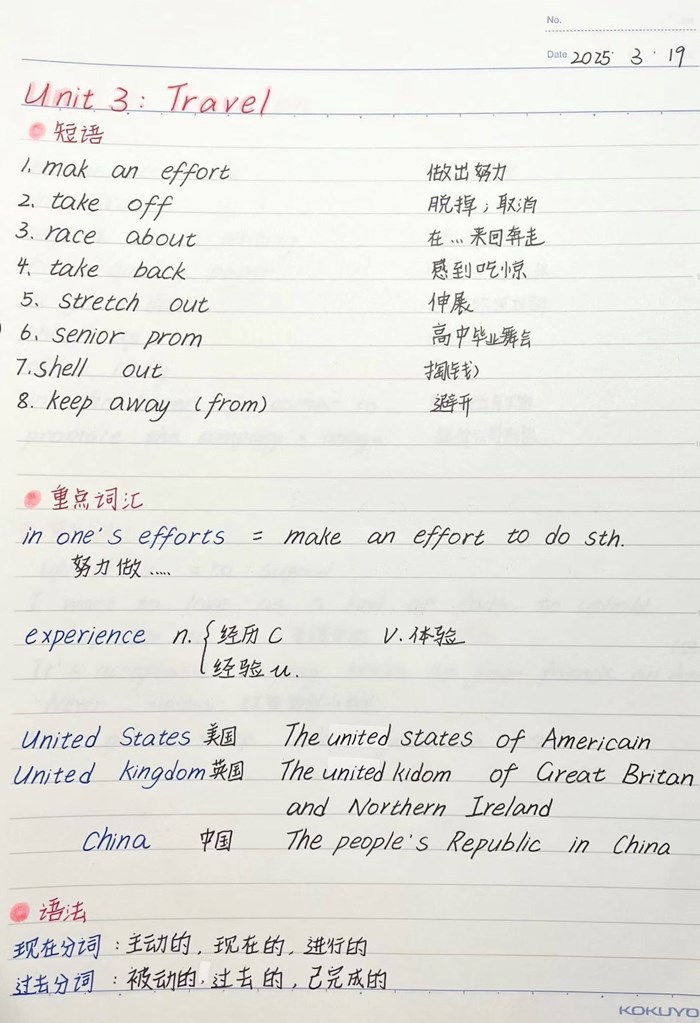 No.
Date 2025 · 3 · 19
Unit 3: Travel
短语
1. mak an effort 做出努力
2. take off 脱掉；取消
3. race about 在…来回奔走
4. take back 感到吃惊
5. stretch out 伸展
6. senior prom 高中毕业舞会
7. shell out 掏(钱)
8. keep away (from) 避开
重点词汇
in one's efforts = make an effort to do sth.
努力做.....
experience n. { 经历 C v. 体验
经验 u.
United States 美国 The united states of Americain
United kingdom 英国 The united kidom of Great Britan
and Northern Ireland
China 中国 The people's Republic in China
语法
现在分词：主动的，现在的，进行的
过去分词：被动的，过去的，已完成的
KOKUYO